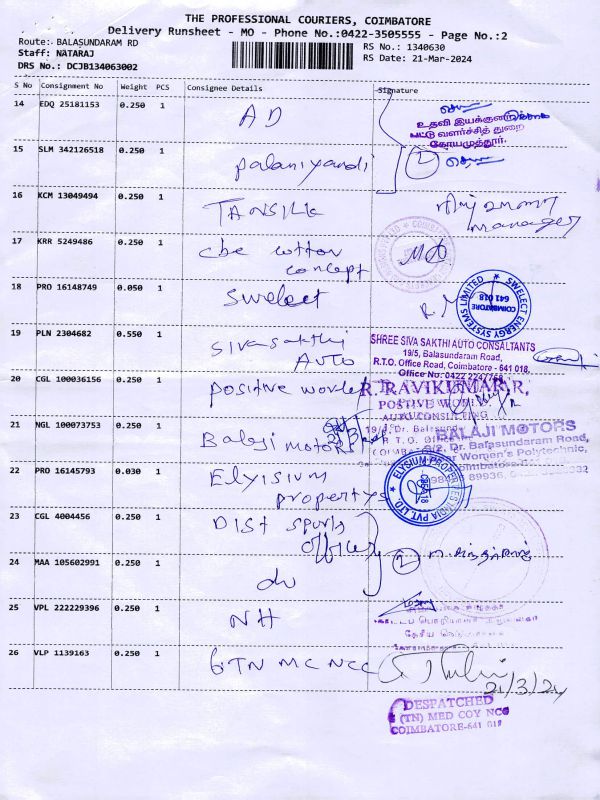 THE PROFESSIONAL COURIERS, COIMBATORE
Delivery Runsheet - MO - Phone No.:0422-3505555 - Page No.:2
Route: BALASUNDARAM RD
RS No.: 1340630
Staff: NATARAJ
RS Date: 21-Mar-2024
DRS No.: DCJB134063002
S No Consignment No Weight PCS Consignee Details Signature
14 EDQ 25181153 0.250 1 AD
உதவி இயக்குனர்
பட்டு வளர்ச்சித் துறை
கோயமுத்தூர்.
15 SLM 342126518 0.250 1 palaniyandi 2
16 KCM 13049494 0.250 1 TANSILK
manager
17 KRR 5249486 0.250 1 cbe cotton
concept
18 PRO 16148749 0.050 1 swelect
SWELECT ENERGY SYSTEMS LIMITED
COIMBATORE
641 018
19 PLN 2304682 0.550 1 sivasakthi
AUTO
SHREE SIVA SAKTHI AUTO CONSULTANTS
19/5, Balasundaram Road,
R.T.O. Office Road, Coimbatore - 641 018,
Office No: 0422
20 CGL 100036156 0.250 1 positive worlet
R. RAVIKUMAR, R,
AUTO CONSULTING
21 NGL 100073753 0.250 1 Balaji motors
BALAJI MOTORS
Dr. Balasundaram Road,
Women's Polytechnic,
22 PRO 16145793 0.030 1 Elyisium
propertys
ELYSIUM PROPERTIES INDIA PVT. LTD.
23 CGL 4004456 0.250 1 Dist sports
officer
2
24 MAA 105602991 0.250 1 do
25 VPL 222229396 0.250 1 NH
26 VLP 1139163 0.250 1 6 TN MC NCC
21/3/24
DESPATCHED
(TN) MED COY NCC
COIMBATORE-641 018